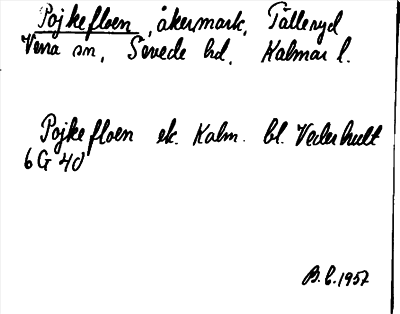 Pojkefloen, åkermark, Tälleryd
Vena sn, Sevede hd, Kalmar l.
Pojkefloen ek. Kalm. bl. Vederhult
6G 40
B.C. 1957